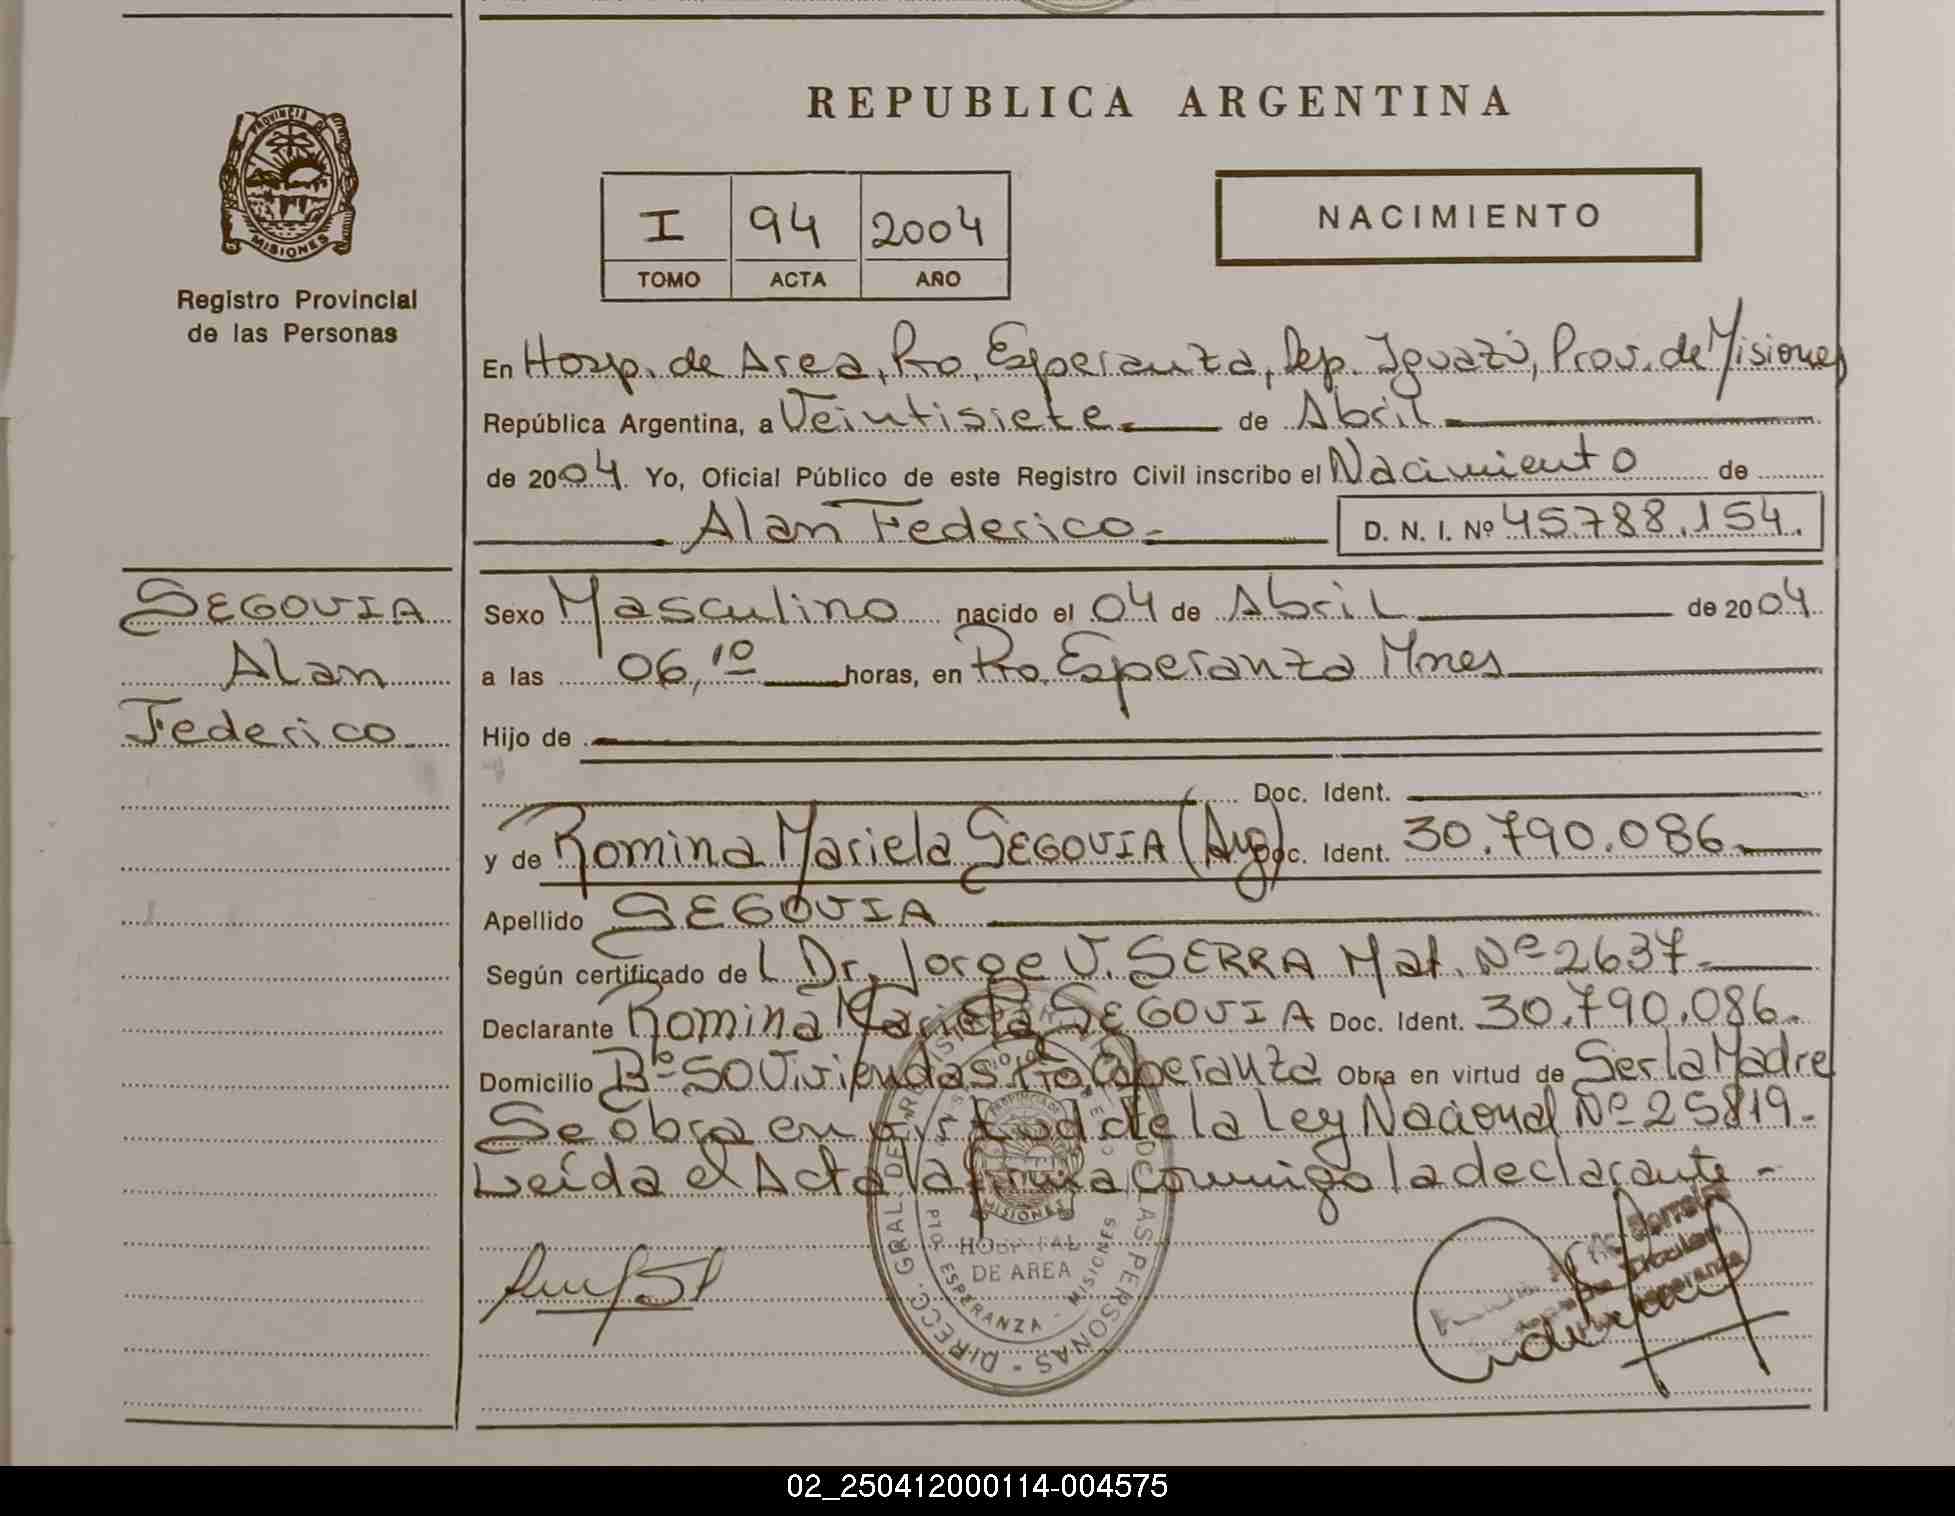 REPUBLICA ARGENTINA
PROVINCIA DE
MISIONES
Registro Provincial
de las Personas
I 94 2004
TOMO ACTA AÑO
NACIMIENTO
En Hosp. de Area, Pto. Esperanza, Dep. Iguazú, Prov. de Misiones
República Argentina, a Veintisiete de Abril
de 2004. Yo, Oficial Público de este Registro Civil inscribo el Nacimiento de
Alan Federico.- D. N. I. Nº 45.788.154.
SEGOVIA
Alan
Federico
Sexo Masculino nacido el 04 de Abril de 2004
a las 06,10 horas, en Pto. Esperanza Mnes
Hijo de
Doc. Ident.
y de Romina Mariela SEGOVIA (Arg) Doc. Ident. 30.790.086.
Apellido SEGOVIA
Según certificado de L Dr. Jorge V. SERRA Mat. Nº 2637.
Declarante Romina Mariela SEGOVIA Doc. Ident. 30.790.086.
Domicilio Bº 50 Viviendas Pto. Esperanza Obra en virtud de Ser la Madre
Se obra en virtud de la Ley Nacional Nº 25819.-
Leída el Acta la firma conmigo la declarante.-
DIRECC. GRAL. DE REGISTRO DE LAS PERSONAS
PROVINCIA DE
MISIONES
HOSPITAL
DE AREA
PTO ESPERANZA - MISIONES
02_250412000114-004575